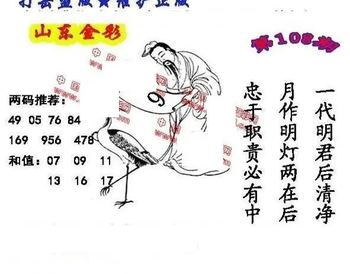 打击盗版 维护正版
山东金彩
第108期
两码推荐：
49 05 76 84
169 956 478
和值： 07 09 11
13 16 17
9
一代明君后清净
月作明灯两在后
忠于职贵必有中